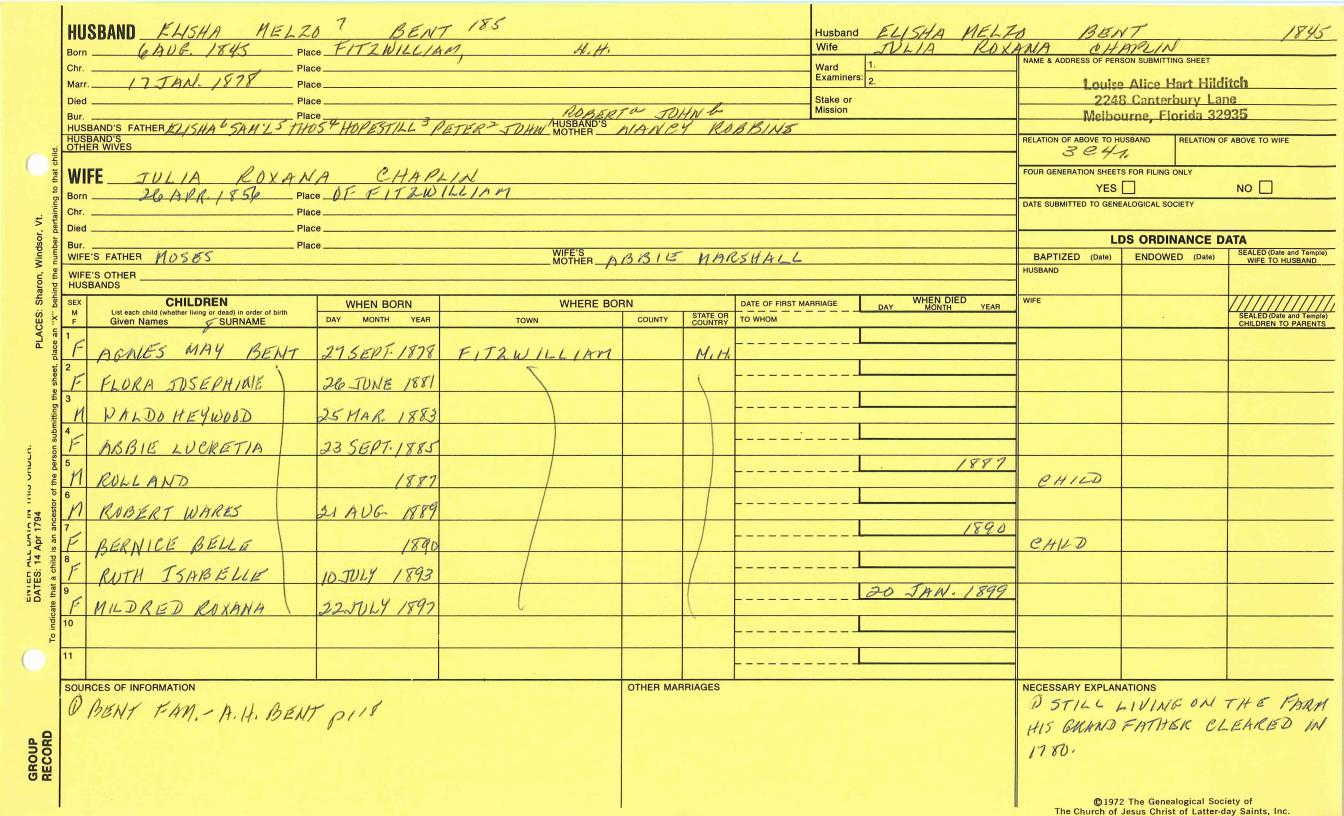 HUSBAND ELISHA MELZO 7 BENT 185
Born 6 AUG. 1845 Place FITZWILLIAM, N.H.
Chr. Place
Marr. 17 JAN. 1878 Place
Died Place
Bur. Place
ROBERT a JOHN b
HUSBAND'S FATHER ELISHA 6 SAM'L 5 THOS 4 HOPESTILL 3 PETER 2 JOHN 1 HUSBAND'S MOTHER NANCY ROBBINS
HUSBAND'S OTHER WIVES
WIFE JULIA ROXANA CHAPLIN
Born 26 APR. 1856 Place OF FITZWILLIAM
Chr. Place
Died Place
Bur. Place
WIFE'S FATHER MOSES WIFE'S MOTHER ABBIE MARSHALL
WIFE'S OTHER HUSBANDS
Husband ELISHA MELZO BENT 1845
Wife JULIA ROXANA CHAPLIN
Ward Examiners: 1.
2.
Stake or Mission
NAME & ADDRESS OF PERSON SUBMITTING SHEET
Louise Alice Hart Hilditch
2248 Canterbury Lane
Melbourne, Florida 32935
RELATION OF ABOVE TO HUSBAND RELATION OF ABOVE TO WIFE
3C4r.
FOUR GENERATION SHEETS FOR FILING ONLY
YES NO
DATE SUBMITTED TO GENEALOGICAL SOCIETY
LDS ORDINANCE DATA
BAPTIZED (Date) ENDOWED (Date) SEALED (Date and Temple) WIFE TO HUSBAND
HUSBAND
WIFE
SEALED (Date and Temple) CHILDREN TO PARENTS
SEX M F
CHILDREN
List each child (whether living or dead) in order of birth
Given Names 8 SURNAME
WHEN BORN
DAY MONTH YEAR
WHERE BORN
TOWN COUNTY STATE OR COUNTRY
DATE OF FIRST MARRIAGE
TO WHOM
WHEN DIED
DAY MONTH YEAR
1 F AGNES MAY BENT 27 SEPT. 1878 FITZWILLIAM N.H.
2 F FLORA JOSEPHINE 26 JUNE 1881
3 M WALDO HEYWOOD 25 MAR. 1883
4 F ABBIE LUCRETIA 23 SEPT. 1885
5 M ROLLAND 1887 1887 CHILD
6 M ROBERT WARES 21 AUG 1889
7 F BERNICE BELLE 1890 1890 CHILD
8 F RUTH ISABELLE 10 JULY 1893
9 F MILDRED ROXANA 22 JULY 1897 20 JAN. 1899
10
11
SOURCES OF INFORMATION
① BENT FAM. - A.H. BENT p118
OTHER MARRIAGES
NECESSARY EXPLANATIONS
① STILL LIVING ON THE FARM
HIS GRANDFATHER CLEARED IN
1780.
©1972 The Genealogical Society of
The Church of Jesus Christ of Latter-day Saints, Inc.
GROUP RECORD
DATES: 14 Apr 1794
PLACES: Sharon, Windsor, Vt.
ENTER ALL DATA IN THIS ORDER:
To indicate that a child is an ancestor of the person submitting the sheet, place an "X" behind the number pertaining to that child.